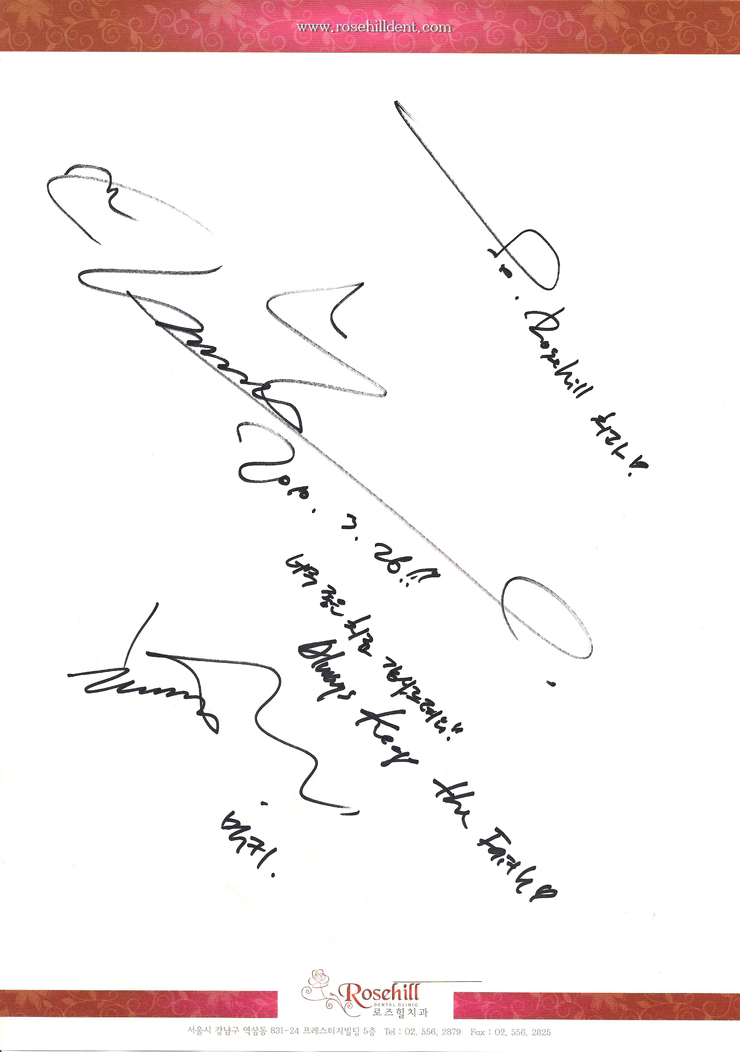 www.rosehilldent.com
To. Rosehill 치과♡
2010. 3. 26!!
너무 좋은 치료 감사드려요!!
Always Keep the Faith♡
Rosehill
DENTAL CLINIC
로즈힐치과
서울시 강남구 역삼동 831-24 프레스티지빌딩 5층 Tel : 02. 556. 2879 Fax : 02. 556. 2825